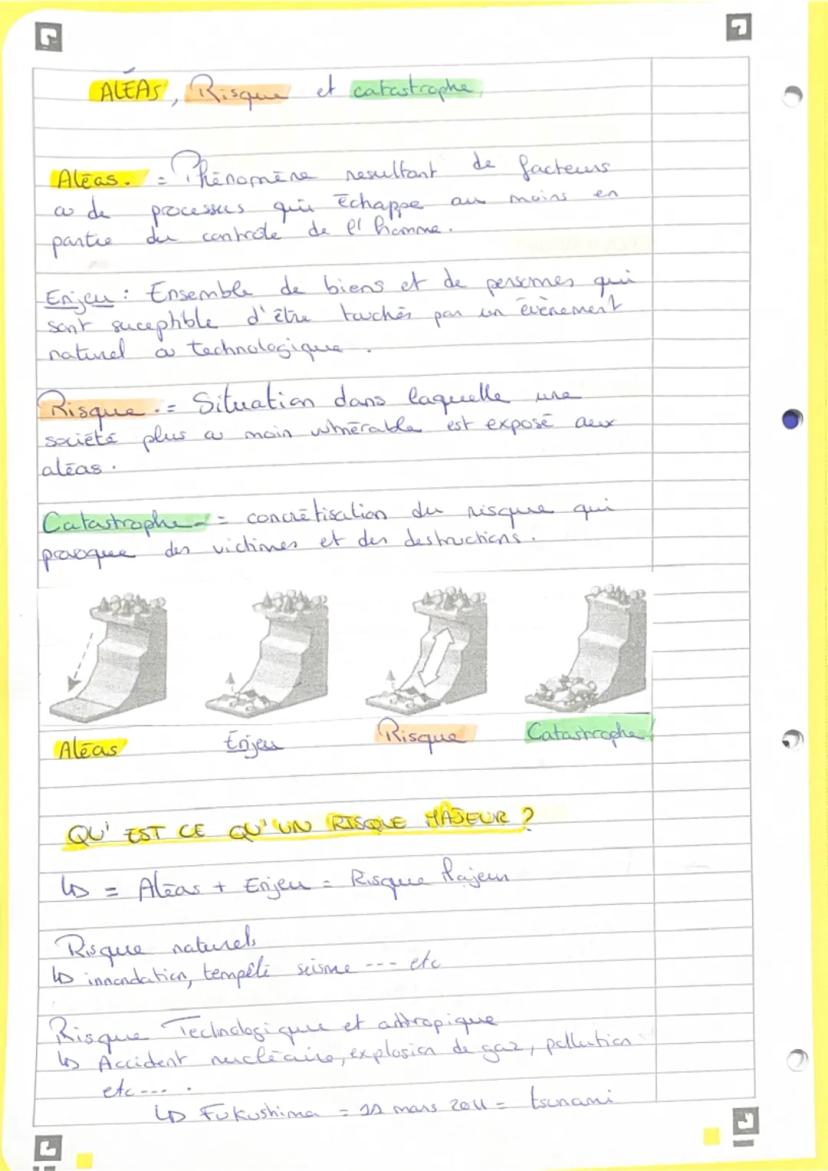 ALÉAS, Risque et catastrophe
Aléas. = Phénomène resultant de facteurs
ou de processus qui échappe au moins en
partie du contrôle de l'homme.
Enjeu : Ensemble de biens et de personnes qui
sont suceptible d'être touchés par un évènement
naturel ou technologique.
Risque. = Situation dans laquelle une
société plus ou moin vulnérable est exposé aux
aléas.
Catastrophe = concrétisation du risque qui
provoque des victimes et des destructions.
Aléas Enjeu Risque Catastrophe
QU'EST CE QU'UN RISQUE MAJEUR ?
↳ = Aléas + Enjeu = Risque Majeur
Risque naturels
↳ innondation, tempête seisme --- etc
Risque Technologique et antropique
↳ Accident nucléaire, explosion de gaz, pollution
etc--- .
↳ Fukushima = 11 mars 2011 = tsunami